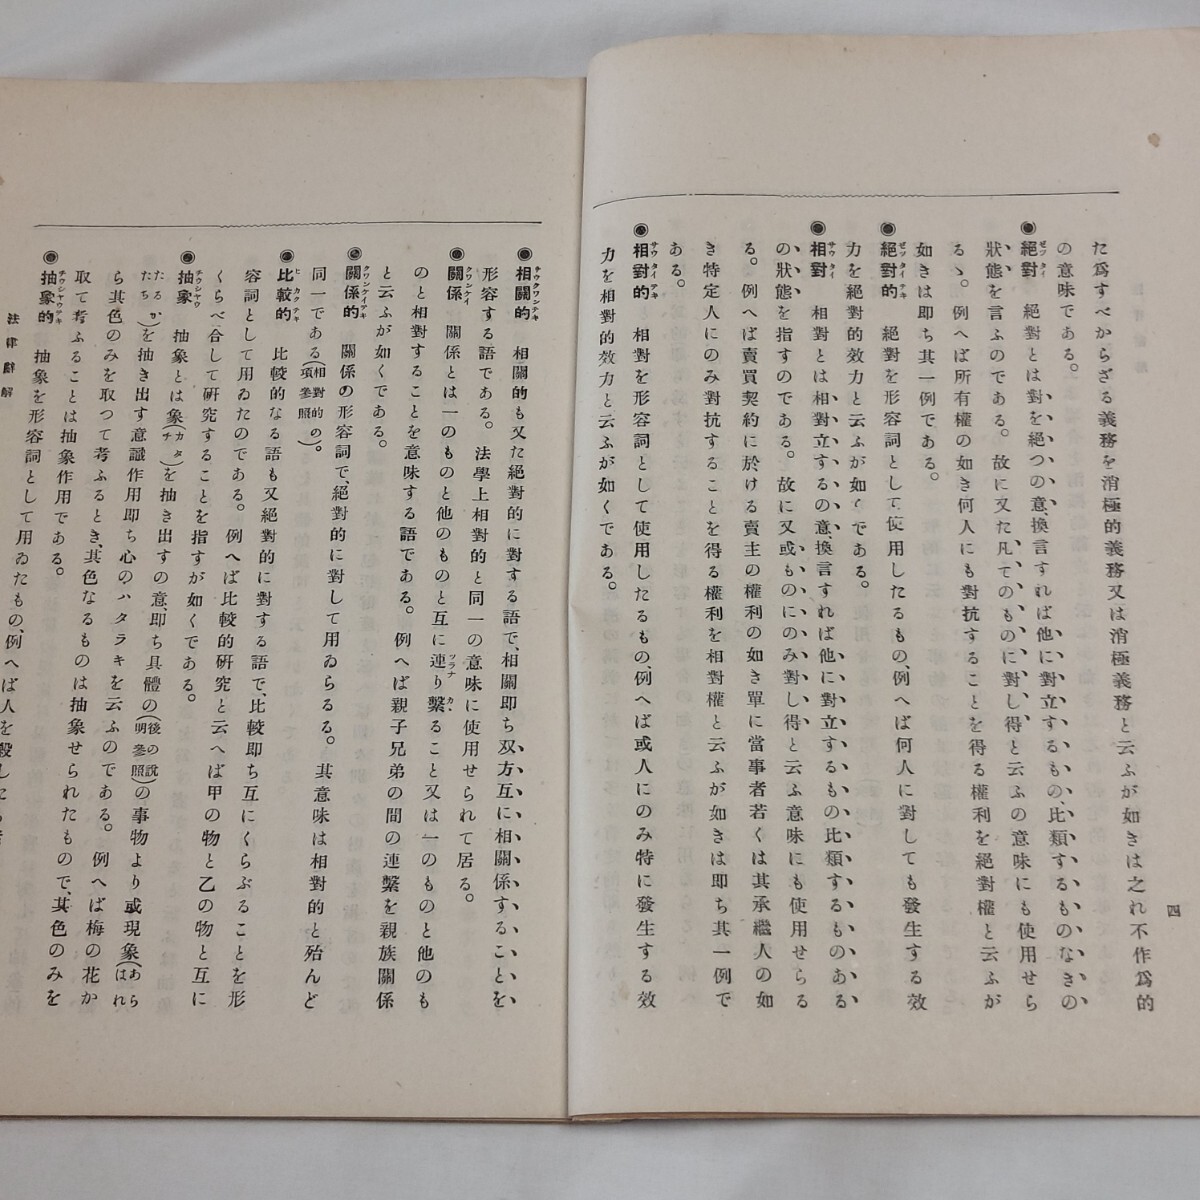 四
た爲すべからざる義務を消極的義務又は消極義務と云ふが如きは之れ不作爲的
の意味である。
◉絕對 絕對とは對を絕つの意、換言すれば他に對立するもの、比類するものなきの
狀態を言ふのである。故に又た凡てのものに對し得と云ふの意味にも使用せら
るゝ。例へば所有權の如き何人にも對抗することを得る權利を絕對權と云ふが
如きは即ち其一例である。
◉絕對的 絕對を形容詞として使用したるもの、例へば何人に對しても發生する效
力を絕對的效力と云ふが如くである。
◉相對 相對とは相對立するの意、換言すれば他に對立するもの比類するものある
の狀態を指すのである。故に又或ものにのみ對し得と云ふ意味にも使用せらる
る。例へば賣買契約に於ける賣主の權利の如き單に當事者若くは其承繼人の如
き特定人にのみ對抗することを得る權利を相對權と云ふが如きは即ち其一例で
ある。
◉相對的 相對を形容詞として使用したるもの、例へば或人にのみ特に發生する效
力を相對的效力と云ふが如くである。
◉相關的 相關的も又た絕對的に對する語で、相關即ち双方互に相關係することを
形容する語である。法學上相對的と同一の意味に使用せられて居る。
◉關係 關係とは一のものと他のものと互に連り繫ること又は一のものと他のも
のと相對することを意味する語である。例へば親子兄弟の間の連繫を親族關係
と云ふが如くである。
◉關係的 關係の形容詞で、絕對的に對して用ゐらるる。其意味は相對的と殆んど
同一である(相對的の項參照)。
◉比較的 比較的なる語も又絕對的に對する語で、比較即ち互にくらぶることを形
容詞として用ゐたのである。例へば比較的研究と云へば甲の物と乙の物と互に
くらべ合して研究することを指すが如くである。
◉抽象 抽象とは象(カタチ)を抽き出すの意、即ち具體的(後の說明參照)の事物より或現象(あらはれ
たるかたち)を抽き出す意識作用即ち心のハタラキを云ふのである。例へば梅の花か
ら其色のみを取つて考ふるとき、其色なるものは抽象せられたもので、其色のみを
取て考ふることは抽象作用である。
◉抽象的 抽象を形容詞として用ゐたもの、例へば人を殺したる
法律辭解